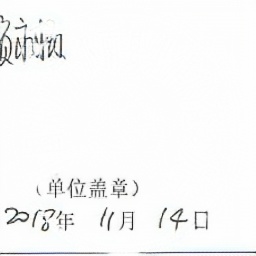 （单位盖章）
2018年 11月 14日